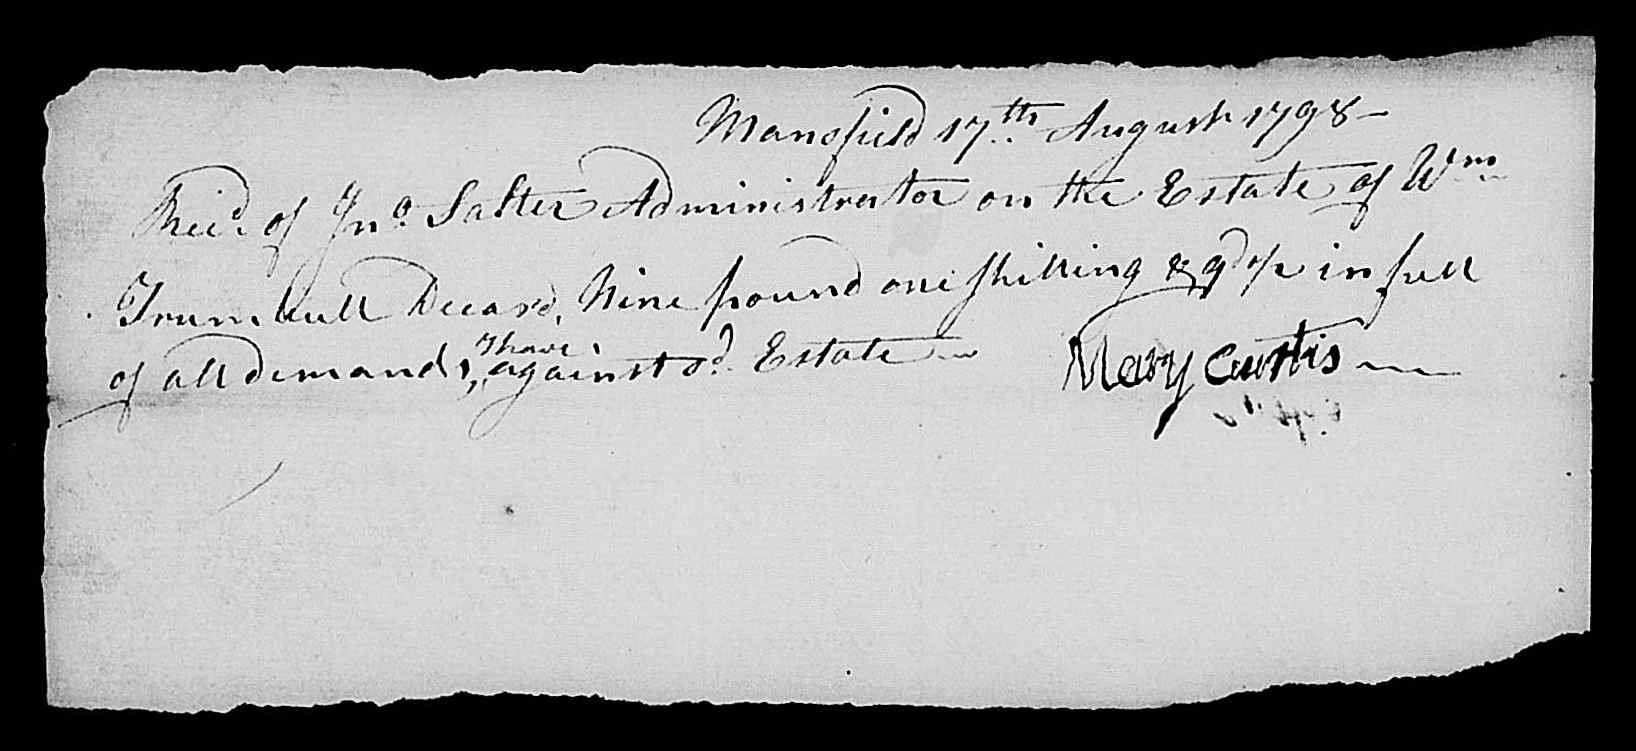 Mansfield 17th August 1798 —
Recd of Jno Salter Administrator on the Estate of Wm
Trumbull Deceasd, Nine pound one shilling & 9d in full
of all demands, I have against sd Estate
Mary Curtis